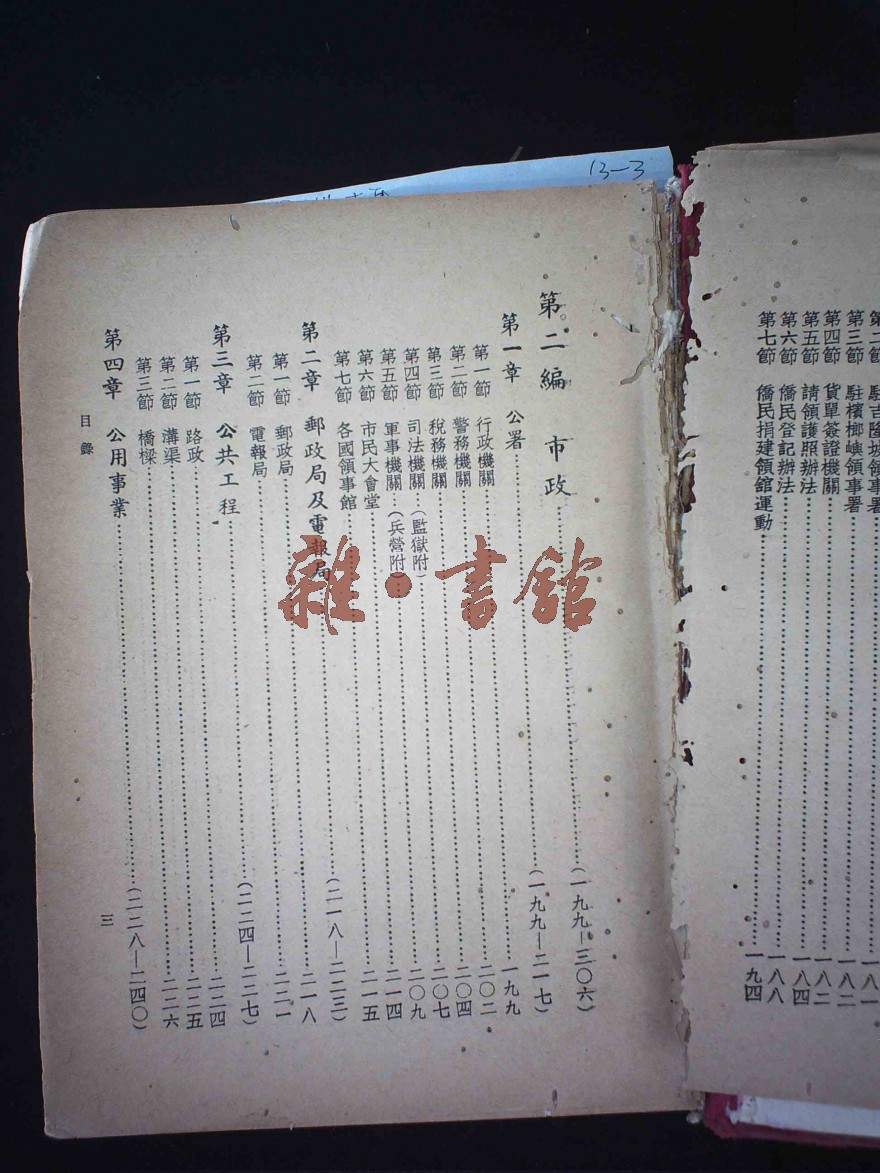 13-3
駐吉隆坡領事署
第三節 駐檳榔嶼領事署……一八二
第四節 貨單簽證機關……一八二
第五節 請領護照辦法……一八四
第六節 僑民登記辦法……一八八
第七節 僑民捐建領館運動……一九四
第二編 市政……(一九九—三〇六)
第一章 公署……(一九九—二一七)
第一節 行政機關……一九九
第二節 警務機關……二〇二
第三節 稅務機關……二〇四
第四節 司法機關(監獄附)……二〇七
第五節 軍事機關(兵營附)……二〇九
第六節 市民大會堂……二一四
第七節 各國領事館……二一五
第二章 郵政局及電報局……(二一八—二二三)
第一節 郵政局……二一八
第二節 電報局……二二一
第三章 公共工程……(二二四—二二七)
第一節 路政……二二四
第二節 溝渠……二二五
第三節 橋樑……二二六
第四章 公用事業……(二二八—二四〇)
目錄 三
雜·書館